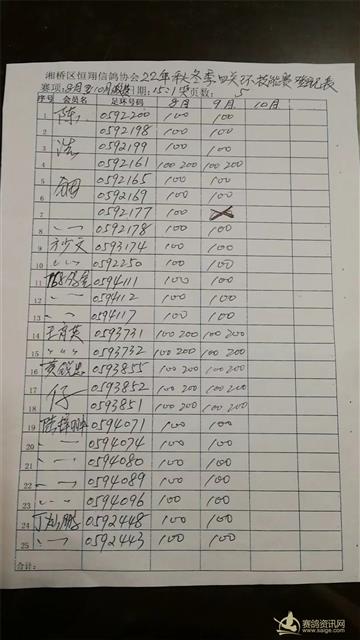 湘桥区恒翔信鸽协会22年秋冬季四关环投能赛登记表
赛项:8月至10月 日期: 15:21 页数: 5
序号 会员名 足环号码 8月 9月 10月
1 陈 0592200 100 100
2 0592198 100 100
3 浩 0592199 100 100
4 0592161 100 200 100 200
5 0592165 100 100
6 0592169 100 100
7 0592177 100
8 0592178 100 100
9 方少文 0593174 100 100
10 0592250 100 100
11 0594111 100 100
12 0594112 100 100
13 0594117 100 100
14 王育英 0593731 100 200 100 200
15 0593732 100 200 100 200
16 黄锐忠 0593855 100 200 100 200
17 仔 0593852 100 200 100 200
18 0593851 100 200 100 200
19 0594071 100 100
20 0594074 100 100
21 0594080 100 100
22 0594089 100 100
23 0594096 100 100
24 0592448 100 100
25 0592443 100 100
合计:
赛鸽资讯网
www.saige.com